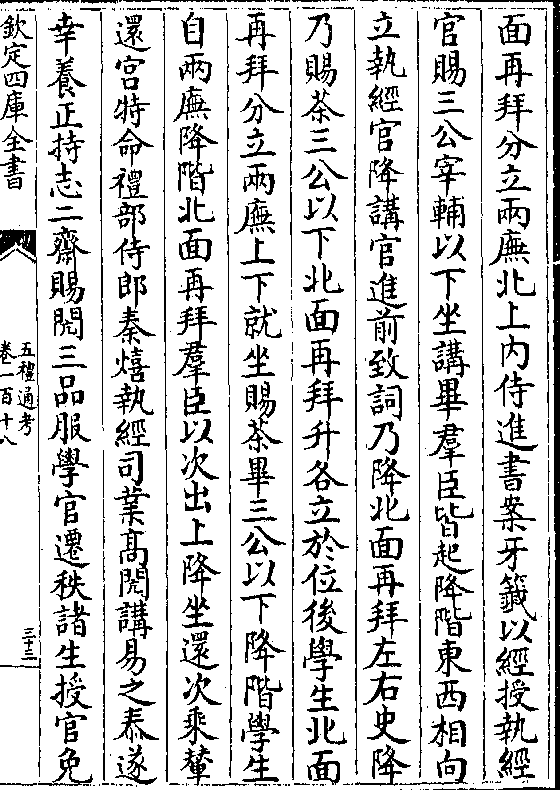 面再拜分立兩廡北上內侍進書案牙籤以經授執經
官賜三公宰輔以下坐講畢羣臣皆起降階東西相向
立執經官降講官進前致詞乃降北面再拜左右史降
乃賜茶三公以下北面再拜升各立於位後學生北面
再拜分立兩廡上下就坐賜茶畢三公以下降階學生
自兩廡降階北面再拜羣臣以次出上降坐還次乘輦
還宮特命禮部侍郎秦熺執經司業髙閌講易之泰遂
幸養正持志二齋賜閌三品服學官遷秩諸生授官免
欽定四庫全書
五禮通考
卷一百十八
三十三